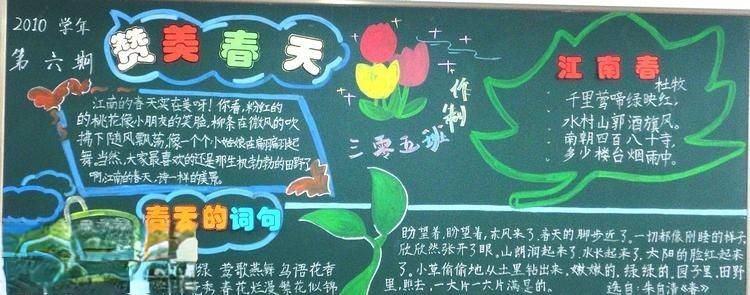 2010 学年
第六期
赞美春天
江南的春天实在美呀！你看，粉红的
的桃花像小朋友的笑脸，柳条在微风的吹
拂下随风飘荡，像一个个小姑娘在翩翩起
舞。当然，大家最喜欢的还是那生机勃勃的田野了
啊，江南的春天，诗一样的美景。
三零五班
作制
江南春
杜牧
千里莺啼绿映红，
水村山郭酒旗风。
南朝四百八十寺，
多少楼台烟雨中。
春天的词句
绿 莺歌燕舞 鸟语花香
秀 春花烂漫 繁花似锦
盼望着，盼望着，东风来了，春天的脚步近了。一切都像刚睡的样子
欣欣然张开了眼。山朗润起来了，水长起来了，太阳的脸红起来
了。小草偷偷地从土里钻出来，嫩嫩的，绿绿的。园子里，田野
里，瞧去，一大片一片满是的。
选自：朱自清《春》